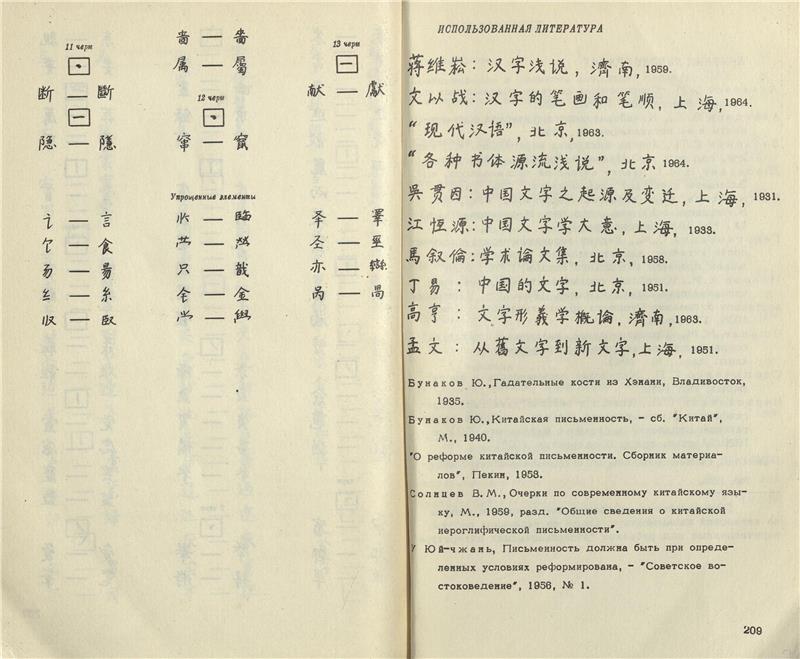 11 черт
断 — 斷
隐 — 隱
讠 — 言
饣 — 食
纟 — 糸
啬 — 嗇
属 — 屬
12 черт
窜 — 竄
Упрощенные элементы
只 — 戠
钅 — 金
13 черт
献 — 獻
圣 — 巠
亦 — 䜌
呙 — 咼
ИСПОЛЬЗОВАННАЯ ЛИТЕРАТУРА
蒋维崧: 汉字浅说, 濟南, 1959.
文以战: 汉字的笔画和笔顺, 上海, 1964.
"现代汉语", 北京, 1963.
"各种书体源流浅说", 北京 1964.
吳贯因: 中国文字之起源及变迁, 上海, 1931.
江恆源: 中国文字学大意, 上海, 1933.
馬叙倫: 学术論文集, 北京, 1958.
丁易: 中国的文字, 北京, 1951.
高亨: 文字形義学概論, 濟南, 1963.
孟文: 从舊文字到新文字, 上海, 1951.
Бунаков Ю., Гадательные кости из Хэнани, Владивосток,
1935.
Бунаков Ю., Китайская письменность, – сб. "Китай",
М., 1940.
"О реформе китайской письменности. Сборник материа-
лов", Пекин, 1958.
Солнцев В.М., Очерки по современному китайскому язы-
ку, М., 1959, разд. "Общие сведения о китайской
иероглифической письменности".
У Юй-чжань, Письменность должна быть при опреде-
ленных условиях реформирована, – "Советское во-
стоковедение", 1956, № 1.
209